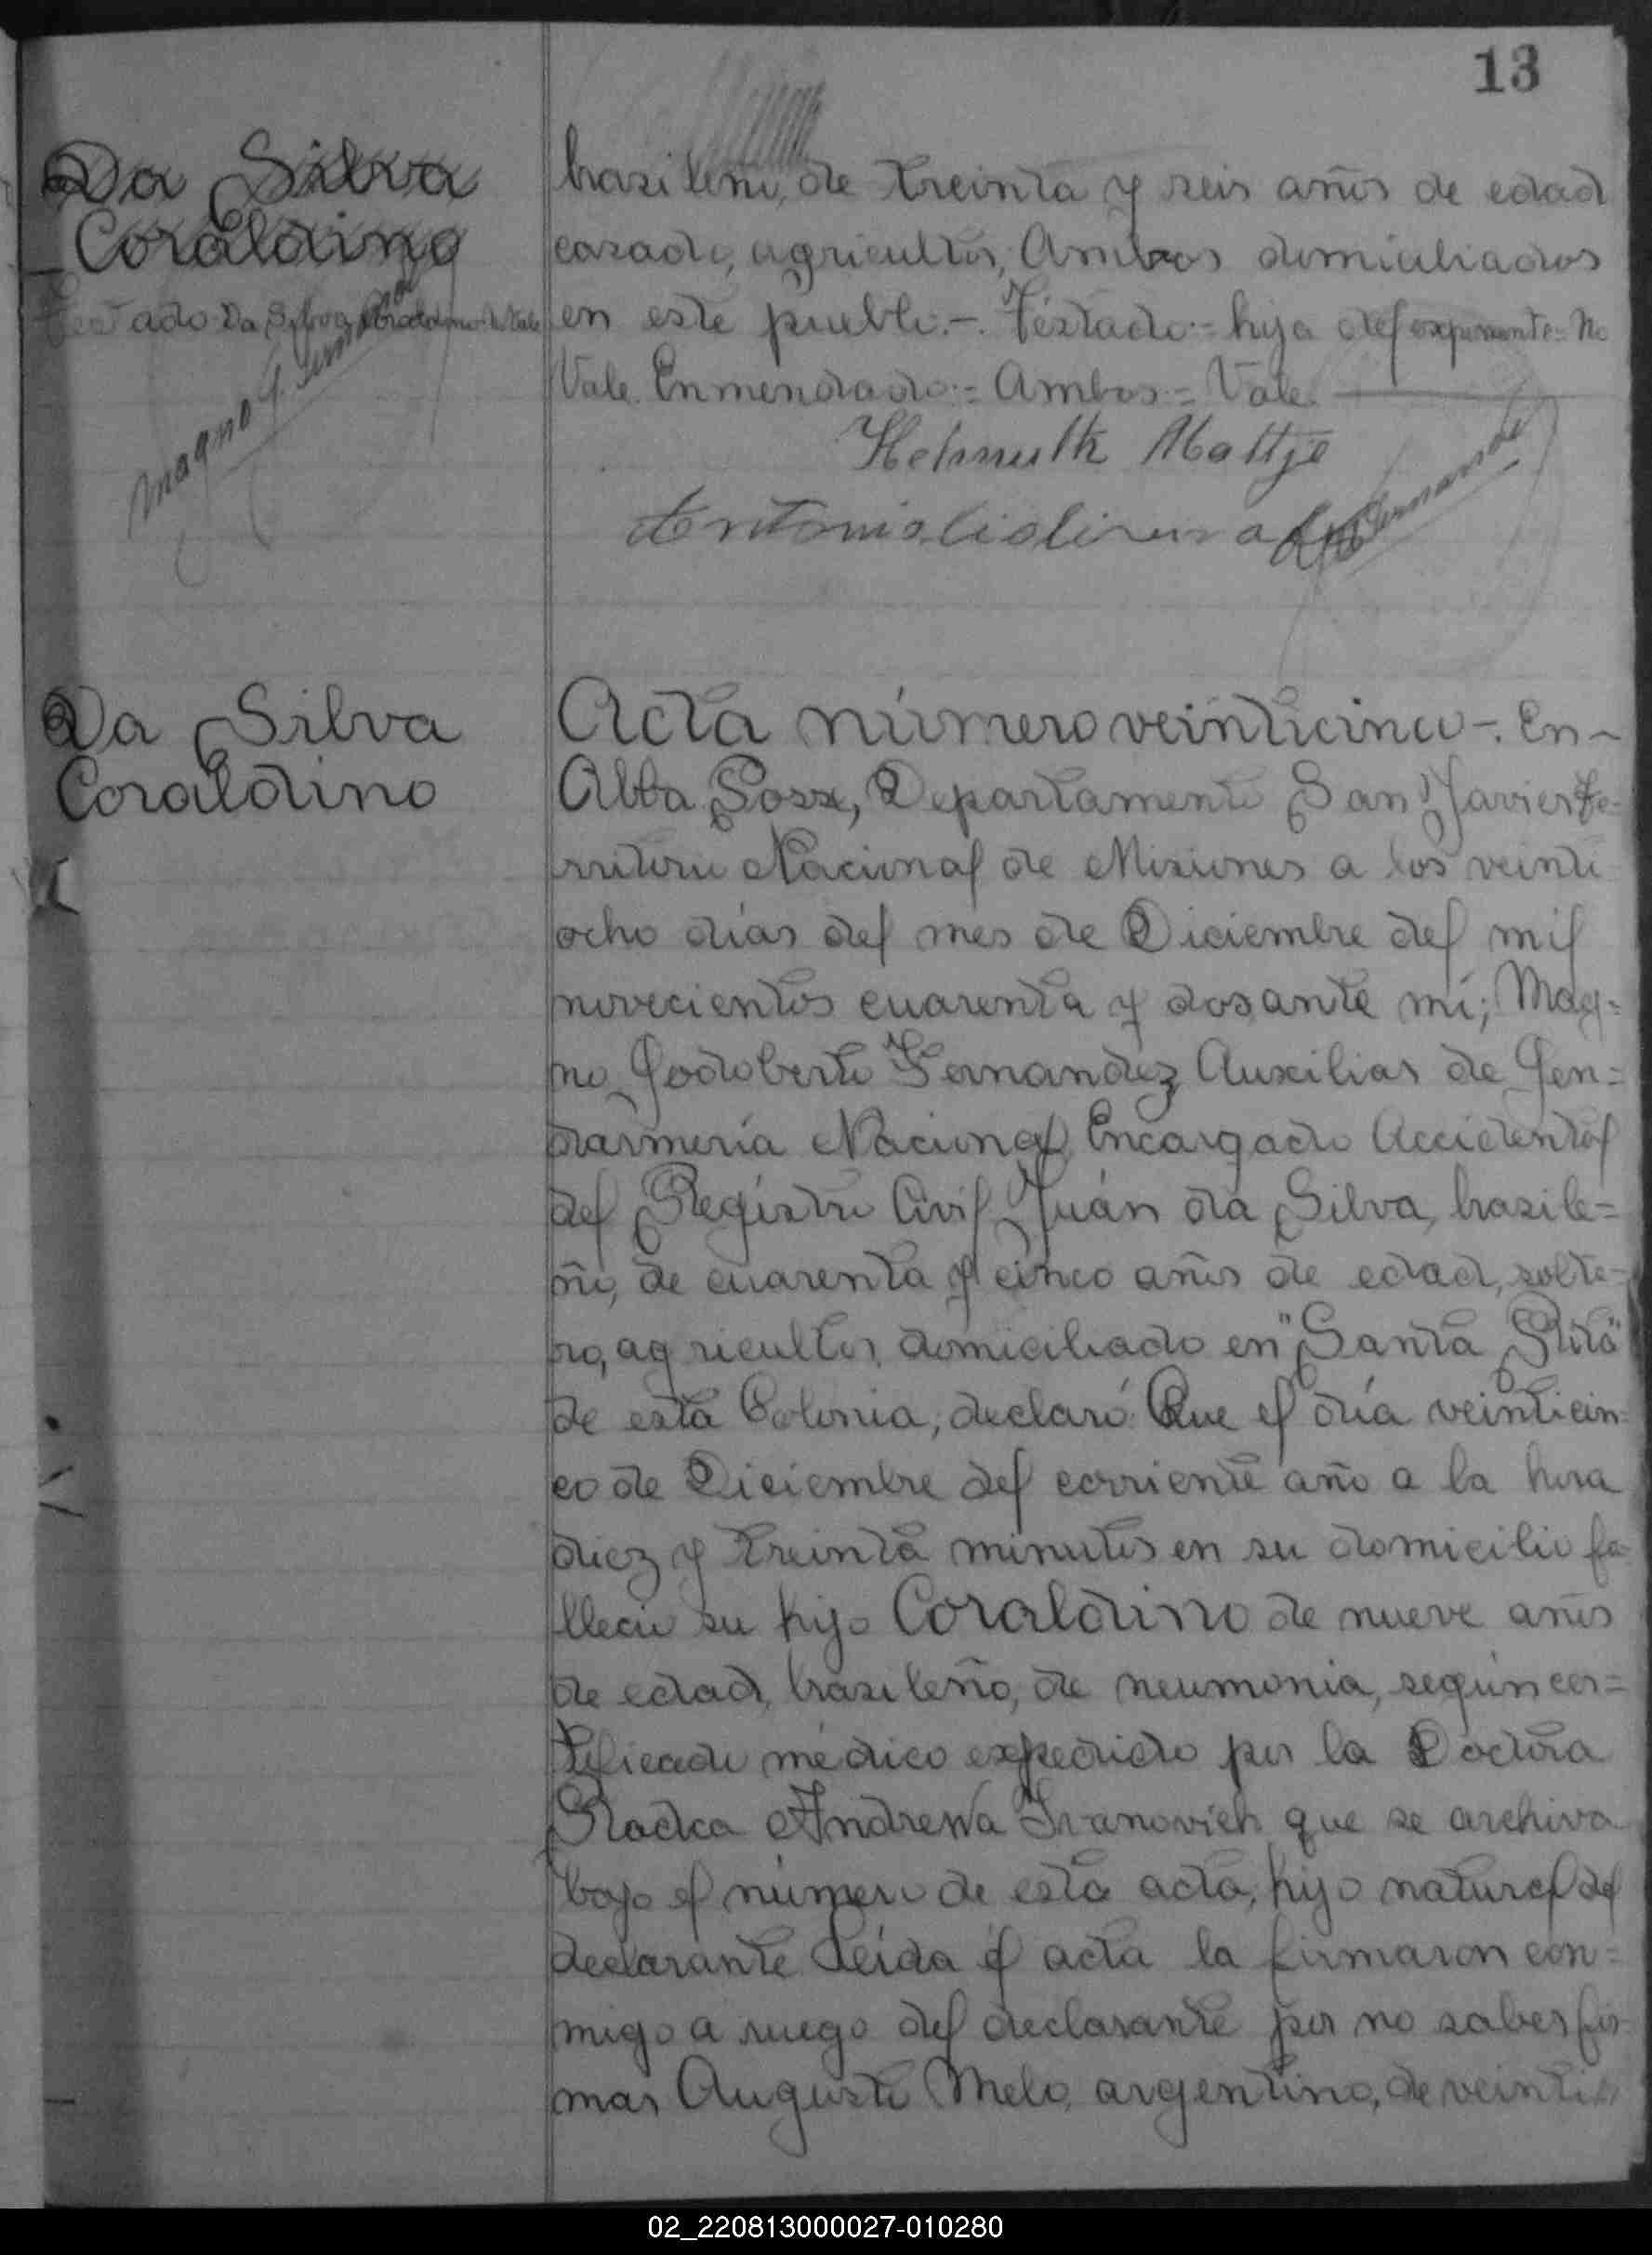 13
Da Silva
Coraldino
Testado Da Silva Coraldino No Vale
Magno G. Fernandez
brasileño, de treinta y seis años de edad
casado, agricultor, Ambos domiciliados
en este pueblo.-. Téstado:= hija del exponente= No
Vale. Enmendado:= Ambos:= Vale.
Helmuth Mattje
Antonio
Fernandez
Da Silva
Coraldino
Acta número veinticinco-. En-
Alba Posse, Departamento San Javier Te-
rritorio Nacional de Misiones a los veinti
ocho días del mes de Diciembre del mil
novecientos cuarenta y dos ante mí; Mag=
no Godoberto Fernandéz Auxiliar de Gen=
darmería Nacional Encargado Accidental
del Regístro Civil Juán da Silva, brasile=
ño, de cuarenta y cinco años de edad, solte-
ro, agricultor, domiciliado en "Santa Rita"
de esta Colonia; declaró: Que el día veinticin=
co de Diciembre del corriente año a la hora
diez y treinta minutos en su domicilio fa-
llecio su hijo Coraldino de nueve años
de edad, brasileño, de neumonia, según cer=
tificado médico expedido por la Doctora
Radca Andrewa Ivanovich que se archiva
bajo el número de esta acta, hijo natural del
declarante Leída el acta la firmaron con=
migo a ruego del declarante por no saber fir-
mar Augusto Melo, argentino, de veinti
02_220813000027-010280